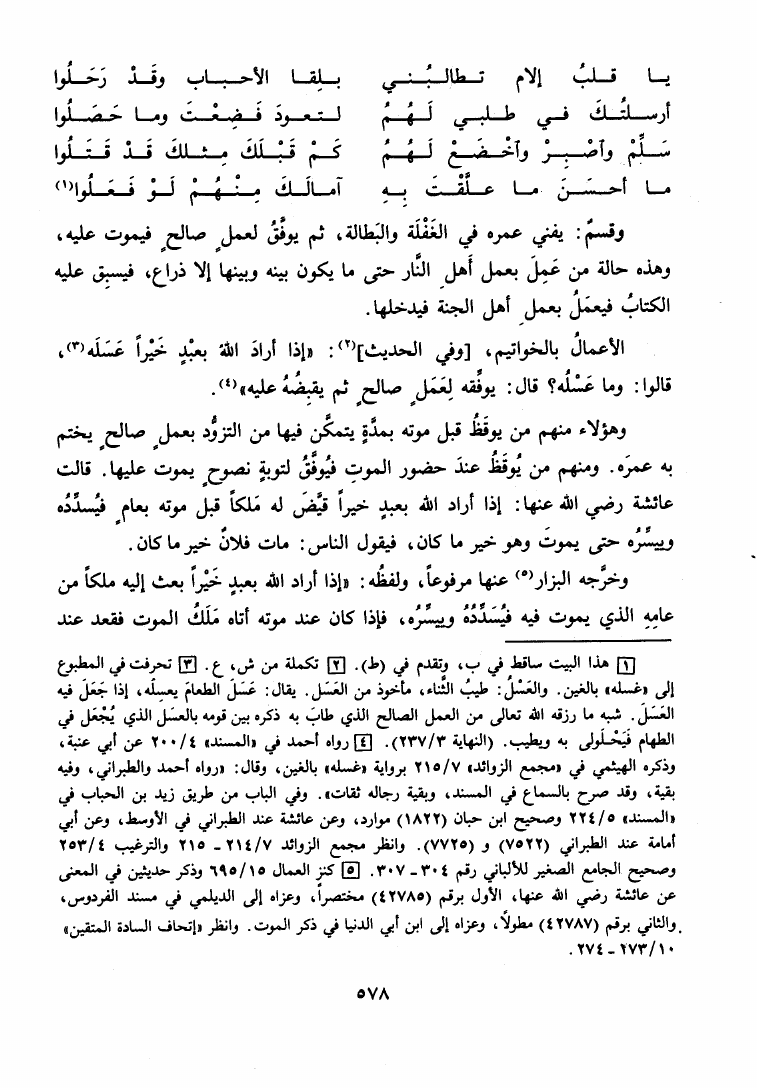 يـا قـلـبُ إلام تـطـالـبُـنـي بـلِـقـا الأحـبـاب وقَـدْ رَحَـلُوا
أرسـلـتُـكَ فـي طـلـبـي لَـهُـمُ لـتـعـودَ فَـضِـعْـتَ ومـا حَـصَـلُوا
سَـلِّـمْ وٱصْـبِـرْ وٱخْـضَـعْ لَـهُـمُ كَـمْ قَـبْـلَكَ مِـثـلـكَ قَـدْ قَـتَـلُوا
مـا أحـسَـنَ مـا عـلَّـقْـتَ بِـهِ آمـالَـكَ مِـنْـهُـمْ لَـوْ فَـعَـلُوا(١)
وقسمٌ: يفني عمره في الغَفْلَة والبَطالة، ثم يوفَّقُ لعملٍ صالحٍ فيموت عليه،
وهذه حالة من عَمِلَ بعمل أهلِ النَّار حتى ما يكون بينه وبينها إلا ذراع، فيسبِق عليه
الكتابُ فيعمَلُ بعملِ أهل الجنة فيدخلها.
الأعمالُ بالخواتيم، [وفي الحديث](٢): «إذا أرادَ اللهُ بعبْدٍ خَيْراً عَسَلَه(٣)،
قالوا: وما عَسْلُه؟ قال: يوفَّقه لِعَمَلٍ صالحٍ ثم يقبِضُهُ عليه»(٤).
وهؤلاء منهم من يوقَظُ قبل موته بمدَّةٍ يتمكَّن فيها من التزوُّد بعملٍ صالحٍ يختم
به عمرَه. ومنهم من يُوقَظُ عندَ حضور الموتِ فيُوفَّقُ لتوبةٍ نصوحٍ يموت عليها. قالت
عائشة رضي الله عنها: إذا أراد الله بعبدٍ خيراً قيَّضَ له مَلكاً قبل موته بعامٍ فيُسدِّدُه
وييسِّرُه حتى يموتَ وهو خير ما كان، فيقول الناس: مات فلانٌ خير ما كان.
وخرَّجه البزار(٥) عنها مرفوعاً، ولفظُه: «إذا أراد الله بعبدٍ خَيْراً بعث إليه ملكاً من
عامِهِ الذي يموت فيه فيُسَدِّدُهُ وييسِّره، فإذا كان عند موته أتاه مَلَكُ الموت فقعد عند
[١] هذا البيت ساقط في ب، وتقدم في (ط). [٢] تكملة من ش، ع. [٣] تحرفت في المطبوع
إلى «غسله» بالغين. والعَسْلُ: طيبُ الثَّناء، مأخوذ من العَسَل. يقال: عَسَلَ الطعامَ يعسِلُه، إذا جَعَلَ فيه
العَسَلَ. شبه ما رزقه الله تعالى من العمل الصالح الذي طابَ به ذكره بين قومه بالعسَل الذي يُجْعَل في
الطهام فَيَحْلولى به ويطيب. (النهاية ٢٣٧/٣). [٤] رواه أحمد في «المسند» ٢٠٠/٤ عن أبي عنبة،
وذكره الهيثمي في «مجمع الزوائد» ٢١٥/٧ برواية «غسله» بالغين، وقال: «رواه أحمد والطبراني، وفيه
بقية، وقد صرح بالسماع في المسند، وبقية رجاله ثقات». وفي الباب من طريق زيد بن الحباب في
«المسند» ٢٢٤/٥ وصحيح ابن حبان (١٨٢٢) موارد، وعن عائشة عند الطبراني في الأوسط، وعن أبي
أمامة عند الطبراني (٧٥٢٢) و (٧٧٢٥). وانظر مجمع الزوائد ٢١٤/٧ - ٢١٥ والترغيب ٢٥٣/٤
وصحيح الجامع الصغير للألباني رقم ٣٠٤ - ٣٠٧. [٥] كنز العمال ٦٩٥/١٥ وذكر حديثين في المعنى
عن عائشة رضي الله عنها، الأول برقم (٤٢٧٨٥) مختصراً، وعزاه إلى الديلمي في مسند الفردوس،
والثاني برقم (٤٢٧٨٧) مطولًا، وعزاه إلى ابن أبي الدنيا في ذكر الموت. وانظر «إتحاف السادة المتقين»
٢٧٣/١٠ - ٢٧٤.
٥٧٨